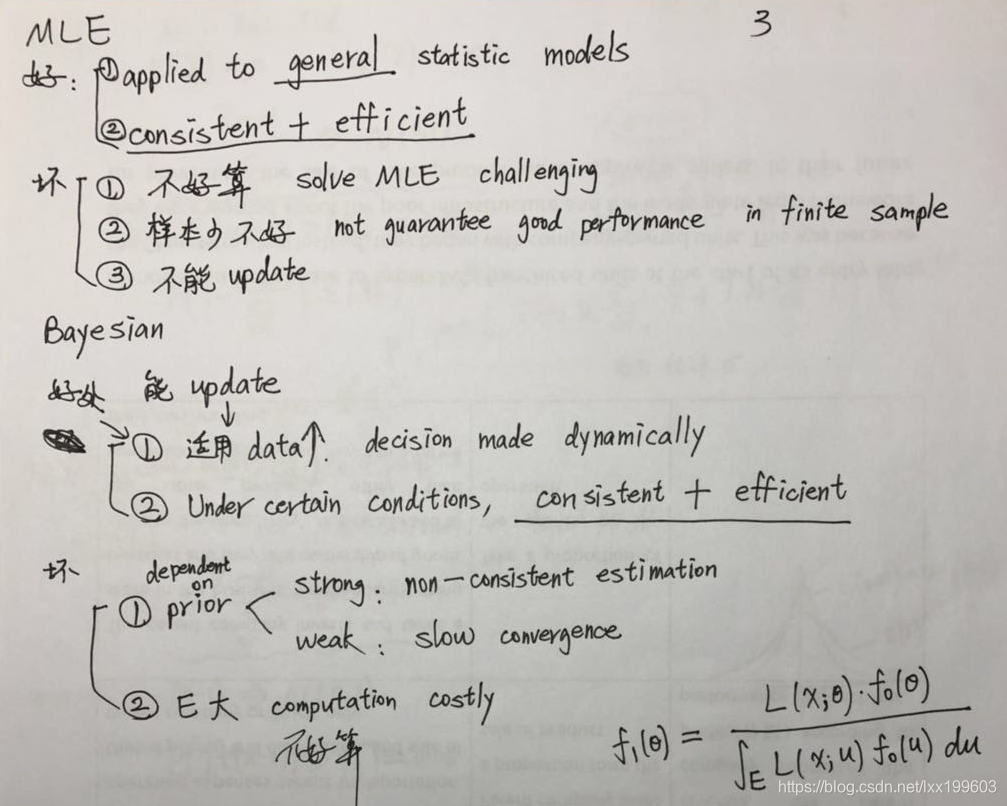 3
MLE
好: ① applied to general statistic models
② consistent + efficient
坏 ① 不好算 solve MLE challenging
② 样本少不好 not guarantee good performance in finite sample
③ 不能 update
Bayesian
好处 能 update
↓
① 适用 data↑. decision made dynamically
② Under certain conditions, consistent + efficient
坏 dependent on
① prior < strong: non-consistent estimation
weak: slow convergence
② E大 computation costly
不好算
f₁(θ) = L(x;θ)·f₀(θ) / ∫_E L(x;u) f₀(u) du
https://blog.csdn.net/lxx199603